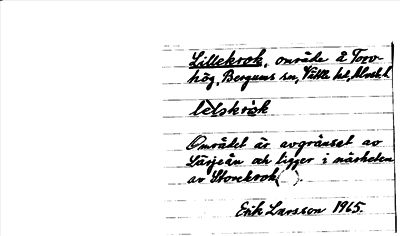 Lillekrok, område å Torv-
hög, Bergums sn, Vättle hd,
lelskrok
Området är avgränsat av
Lärjeån och ligger i närheten
av Storekrok( ).
Erik Larsson 1965.